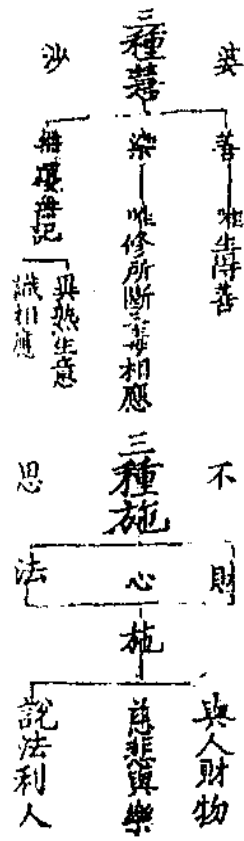 婆
沙
三種
善
唯生得善
染
唯修所斷三毒相應
無覆無記
異熟生意
識相應
不
思
三種施
財
心
法
施
與人財物
慈悲與樂
說法利人